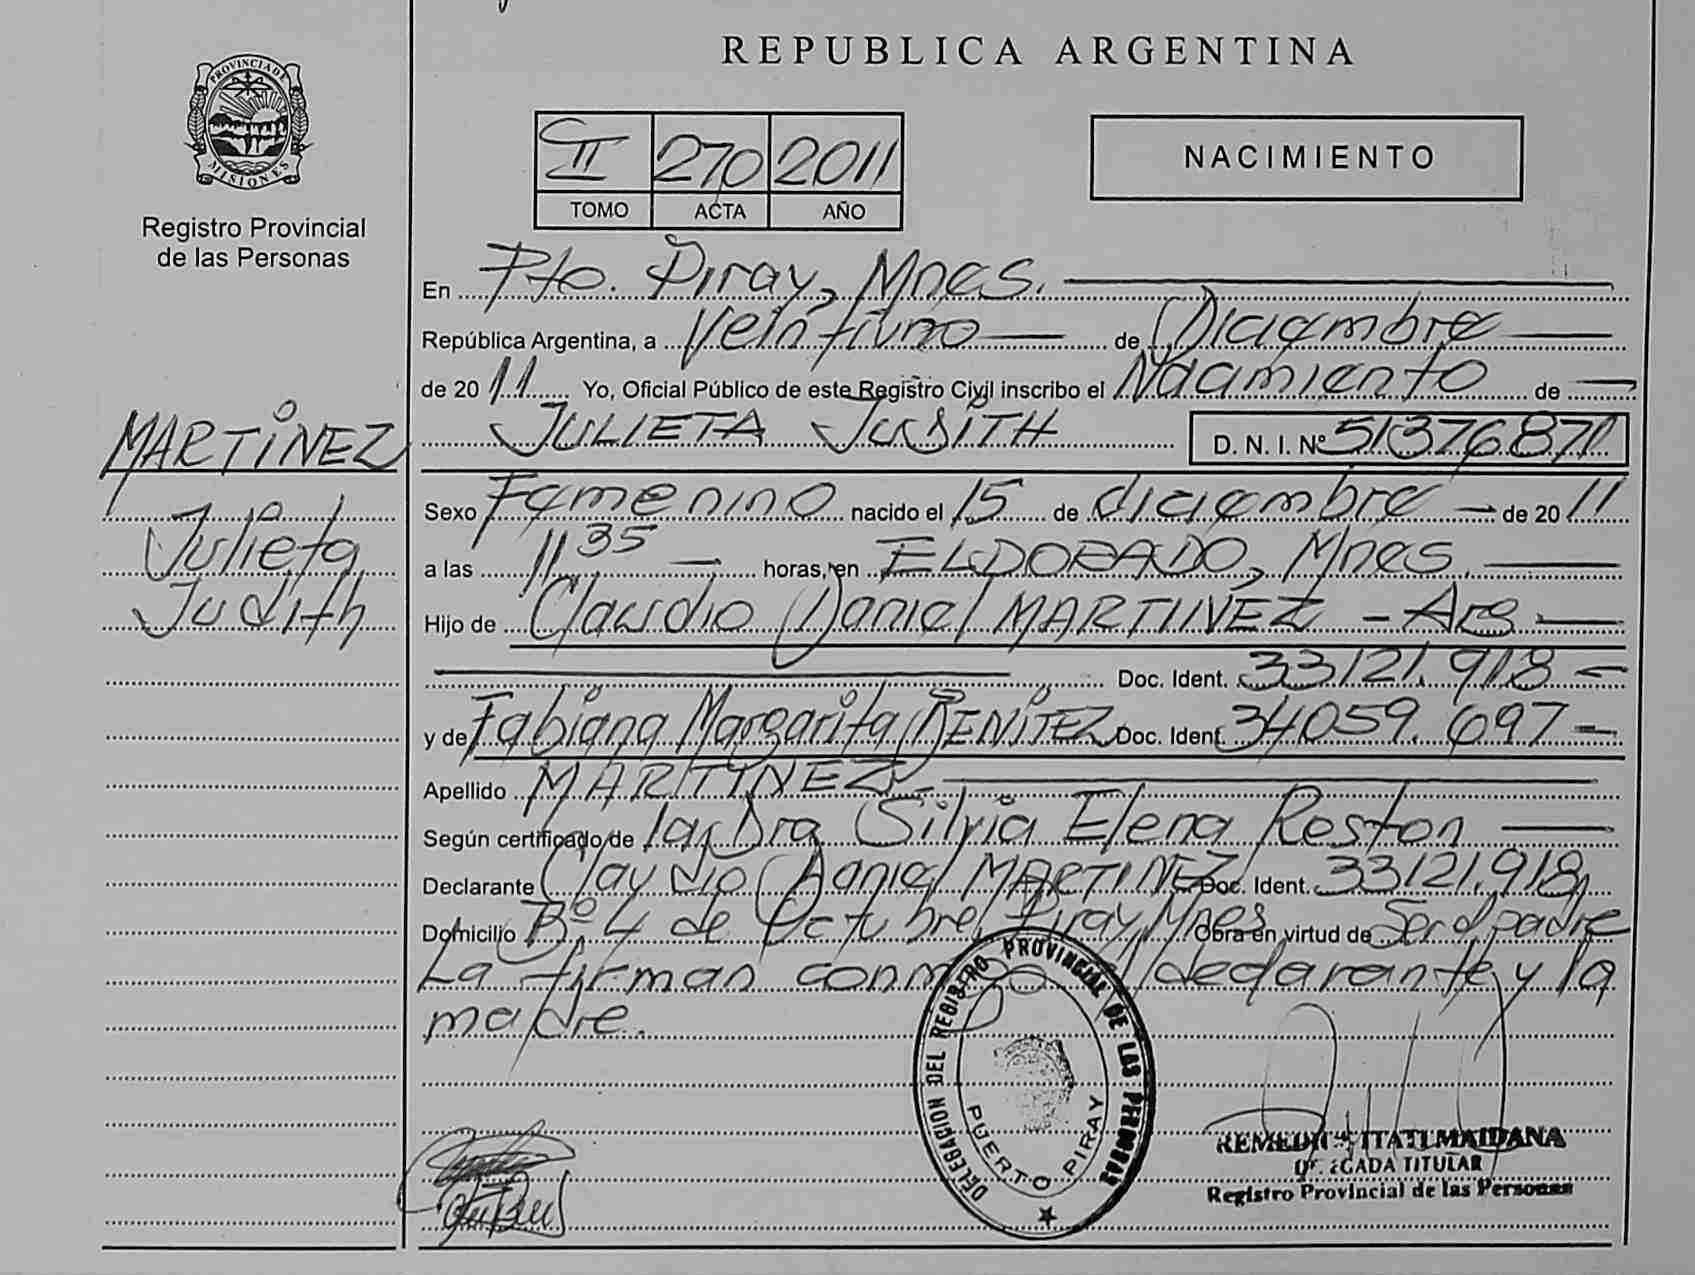 REPUBLICA ARGENTINA
PROVINCIA DE
MISIONES
Registro Provincial
de las Personas
II 270 2011
TOMO ACTA AÑO
NACIMIENTO
En Pto. Piray, Mnes.
República Argentina, a Veintiuno de Diciembre
de 20 11 Yo, Oficial Público de este Registro Civil inscribo el Nacimiento de
JULIETA JUDITH D. N. I. Nº 51376871
MARTINEZ
Julieta
Judith
Sexo Femenino nacido el 15 de diciembre de 20 11
a las 11 35 horas, en ELDORADO, Mnes.
Hijo de Claudio Daniel MARTINEZ - Arg
Doc. Ident. 33121.918
y de Fabiana Margarita BENITEZ Doc. Ident. 34059.697
Apellido MARTINEZ
Según certificado de la Dra Silvia Elena Reston
Declarante Claudio Daniel MARTINEZ Doc. Ident. 33121.918
Domicilio Bº 4 de Octubre, Piray, Mnes Obra en virtud de Ser el padre
La firman conmigo el declarante y la
madre.
DELEGACION DEL REGISTRO PROVINCIAL DE LAS PERSONAS
PUERTO PIRAY
REMEDIOS ITATI MAIDANA
DELEGADA TITULAR
Registro Provincial de las Personas